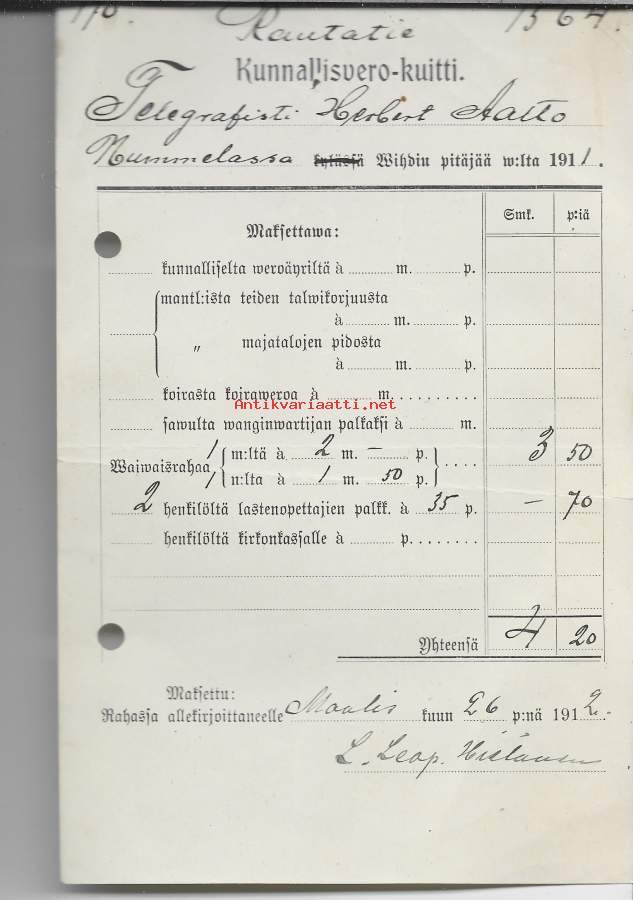 170. 1564.
Rautatie
Kunnallisvero-kuitti.
Telegrafisti Herbert Aalto
Nummelassa kylässä Wihdin pitäjää w:lta 1911.
Smk. p:iä
Maksettawa:
kunnalliselta weroäyriltä à ............ m. ............ p.
mantl:ista teiden talwikorjuusta
à ............ m. ............ p.
„ majatalojen pidosta
à ............ m. ............ p.
koirasta koiraweroa à ............ m. ............
Antikvariaatti.net
sawulta wanginwartijan palkaksi à ............ m.
Waiwaisrahaa 1 m:ltä à 2 m. — p. .... 3 50
1 n:lta à 1 m. 50 p.
2 henkilöltä lastenopettajien palkk. à 35 p. — 70
henkilöltä kirkonkassalle à ............ p. ............
Yhteensä 4 20
Maksettu:
Rahassa allekirjoittaneelle Maalis kuun 26 p:nä 1912.
L. Leop.